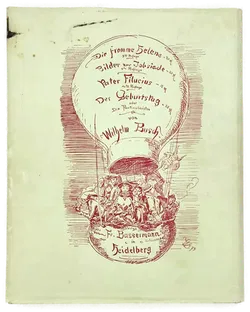 Die fromme Helene
Bilder zur Jobsiade
Pater Filucius
Der Geburtstag
oder
Die Partikularisten
VON
Wilhelm Busch
Fr. Bassermann
Heidelberg